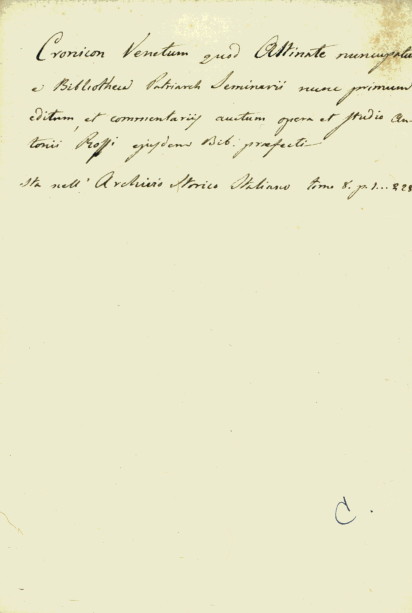 Cronicon Venetum quod Altinate nuncupatu
e Bibliotheca Patriarch Seminarii nunc primum
editum, et commentariis auctum opera et studio An-
tonii Rossi ejusdem Bib. praefecti
sta nell' Archivio Storico Italiano tomo 8. p. 1...228
C.